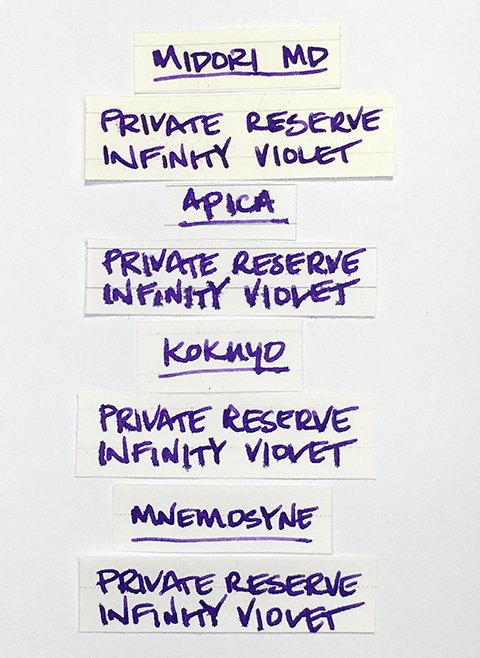 MIDORI MD
PRIVATE RESERVE
INFINITY VIOLET
APICA
PRIVATE RESERVE
INFINITY VIOLET
KOKUYO
PRIVATE RESERVE
INFINITY VIOLET
MNEMOSYNE
PRIVATE RESERVE
INFINITY VIOLET